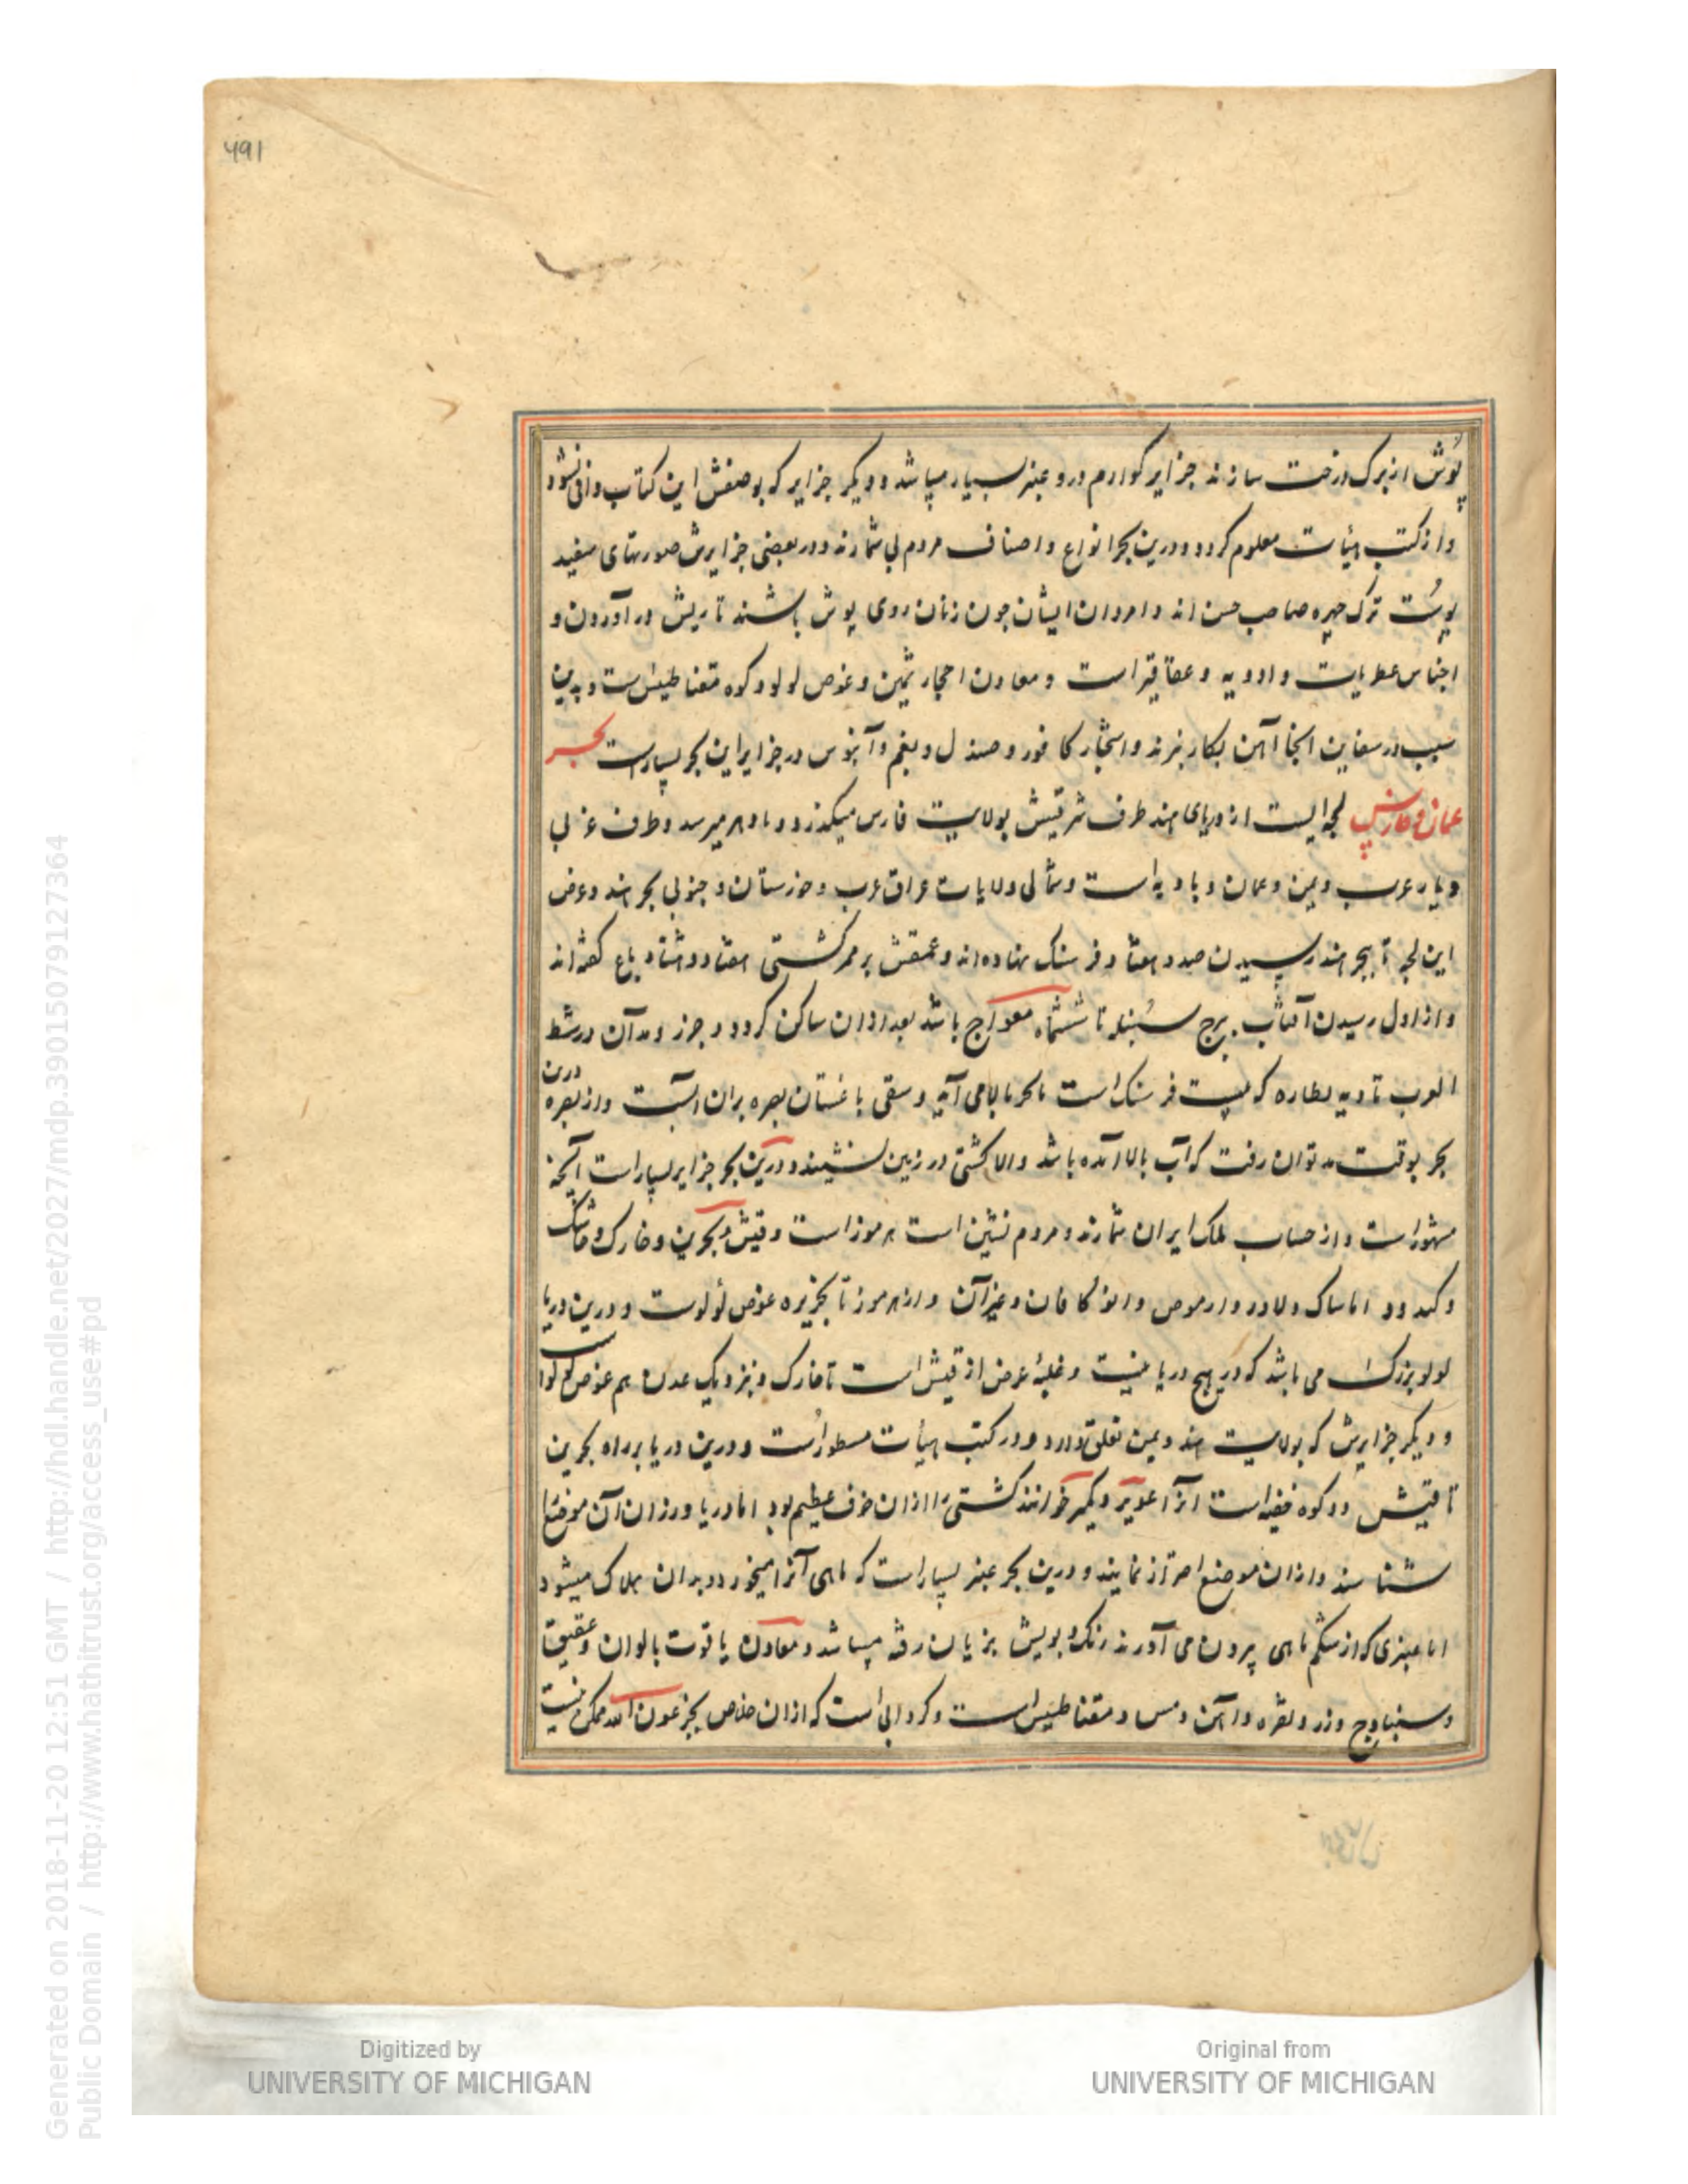 491
پوش از برک درخت سازند جزایر کوارم درو عنبر بسیار میباشد و دیکر جزایر که بوصفش این کتاب وافی نشود
و از کتب هیأت معلوم کردد و درین بحر انواع و اصناف مردم بی شمارند و در بعضی جزایرش صورتهای سفید
پوست ترک چهره صاحب حسن اند و امردان ایشان چون زنان روی پوش باشند تا ریش در آوردن و
اجناس عطریات و ادویه و عقاقیر است و معادن احجار ثمین و غوص لولو و کوه مقناطیس است و بدین
سبب در سفاین انجا آهن بکار نبرند و اشجار کافور و صندل و بقم و آبنوس در جزایر این بحر بسیار است بحر
عمان و فارس لجه ایست از دریای هند طرف شرقیش بولایت فارس میکذرد و میرسد و طرف غربی
دیار عرب و یمن و عمان و بادیه است و شمالی ولایات عراق عرب و خوزستان و جنوبی بحر هند و عرض
این لجه تا ببحر هند رسیدن صد و هفتاد فرسنک نهاده اند و عمقش بر ممر کشتی هفتاد و هشتاد باع کفته اند
و از اول رسیدن آفتاب ببرج سنبله تا ششماه معواج باشد بعد از ان ساکن کردد و جزر و مد آن در شط
العرب تا دیه مطاره که بیست فرسنک است بالا می آید و سقی باغستان بصره بران است و از بصره درین
بحر بوقت مد توان رفت که آب بالا آمده باشد والا کشتی در زمین نشیند و درین بحر جزایر بسیار است آنچه
مشهور است و از حساب ملک ایران شمارند و مردم نشین است هرموز است و قیش و بحرین و خارک و خاسک
و کند و اناساک و لاور و ارموص و ابرکافان و غیر آن و از هرموز تا بجزیره غوص لؤلوست و درین دریا
لولو بزرک می باشد که در هیچ دریا نیست و غلبهٔ عرض از قیش است تا خارک و بنزدیک عدن هم غوص لولو است
و دیکر جزایرش که بولایت هند و یمن تعلق دارد و در کتب هیأت مسطور است و درین دریا بر راه بحرین
تا قیش دو کوه خفیه است انرا عویر و کیر خوانند کشتی را ازان خوف عظیم بود اما دریا ورزان آن موضع را
شناسند و ازان موضع احتراز نمایند و درین بحر عنبر بسیار است که ماهی آنرا میخورد و بدان هلاک میشود
اما عنبری که از شکم ماهی بیرون می آورند رنک و بویش بزیان رفته میباشد و معادن یاقوت بالوان و عقیق
و سنبادج و زر و نقره و آهن و مس و مقناطیس است و کردابی است که ازان خلاص بجز عون الله ممکن نیست
Generated on 2018-11-20 12:51 GMT / http://hdl.handle.net/2027/mdp.39015079127364
Public Domain / http://www.hathitrust.org/access_use#pd
Digitized by
UNIVERSITY OF MICHIGAN
Original from
UNIVERSITY OF MICHIGAN